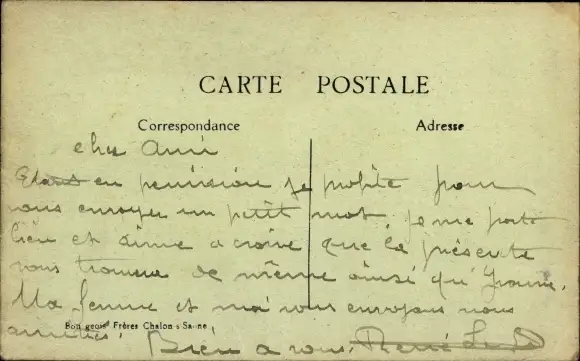 CARTE POSTALE
Correspondance
Adresse
cher Ami
Etant en permission je profite pour
vous envoyer un petit mot, je me porte
bien et aime a croire que la présente
vous trouvera de même ainsi qu'Yvonne.
Ma femme et moi vous envoyons nos
amitiés. Bien a vous, René
Bourgeois Frères Chalon s Saone